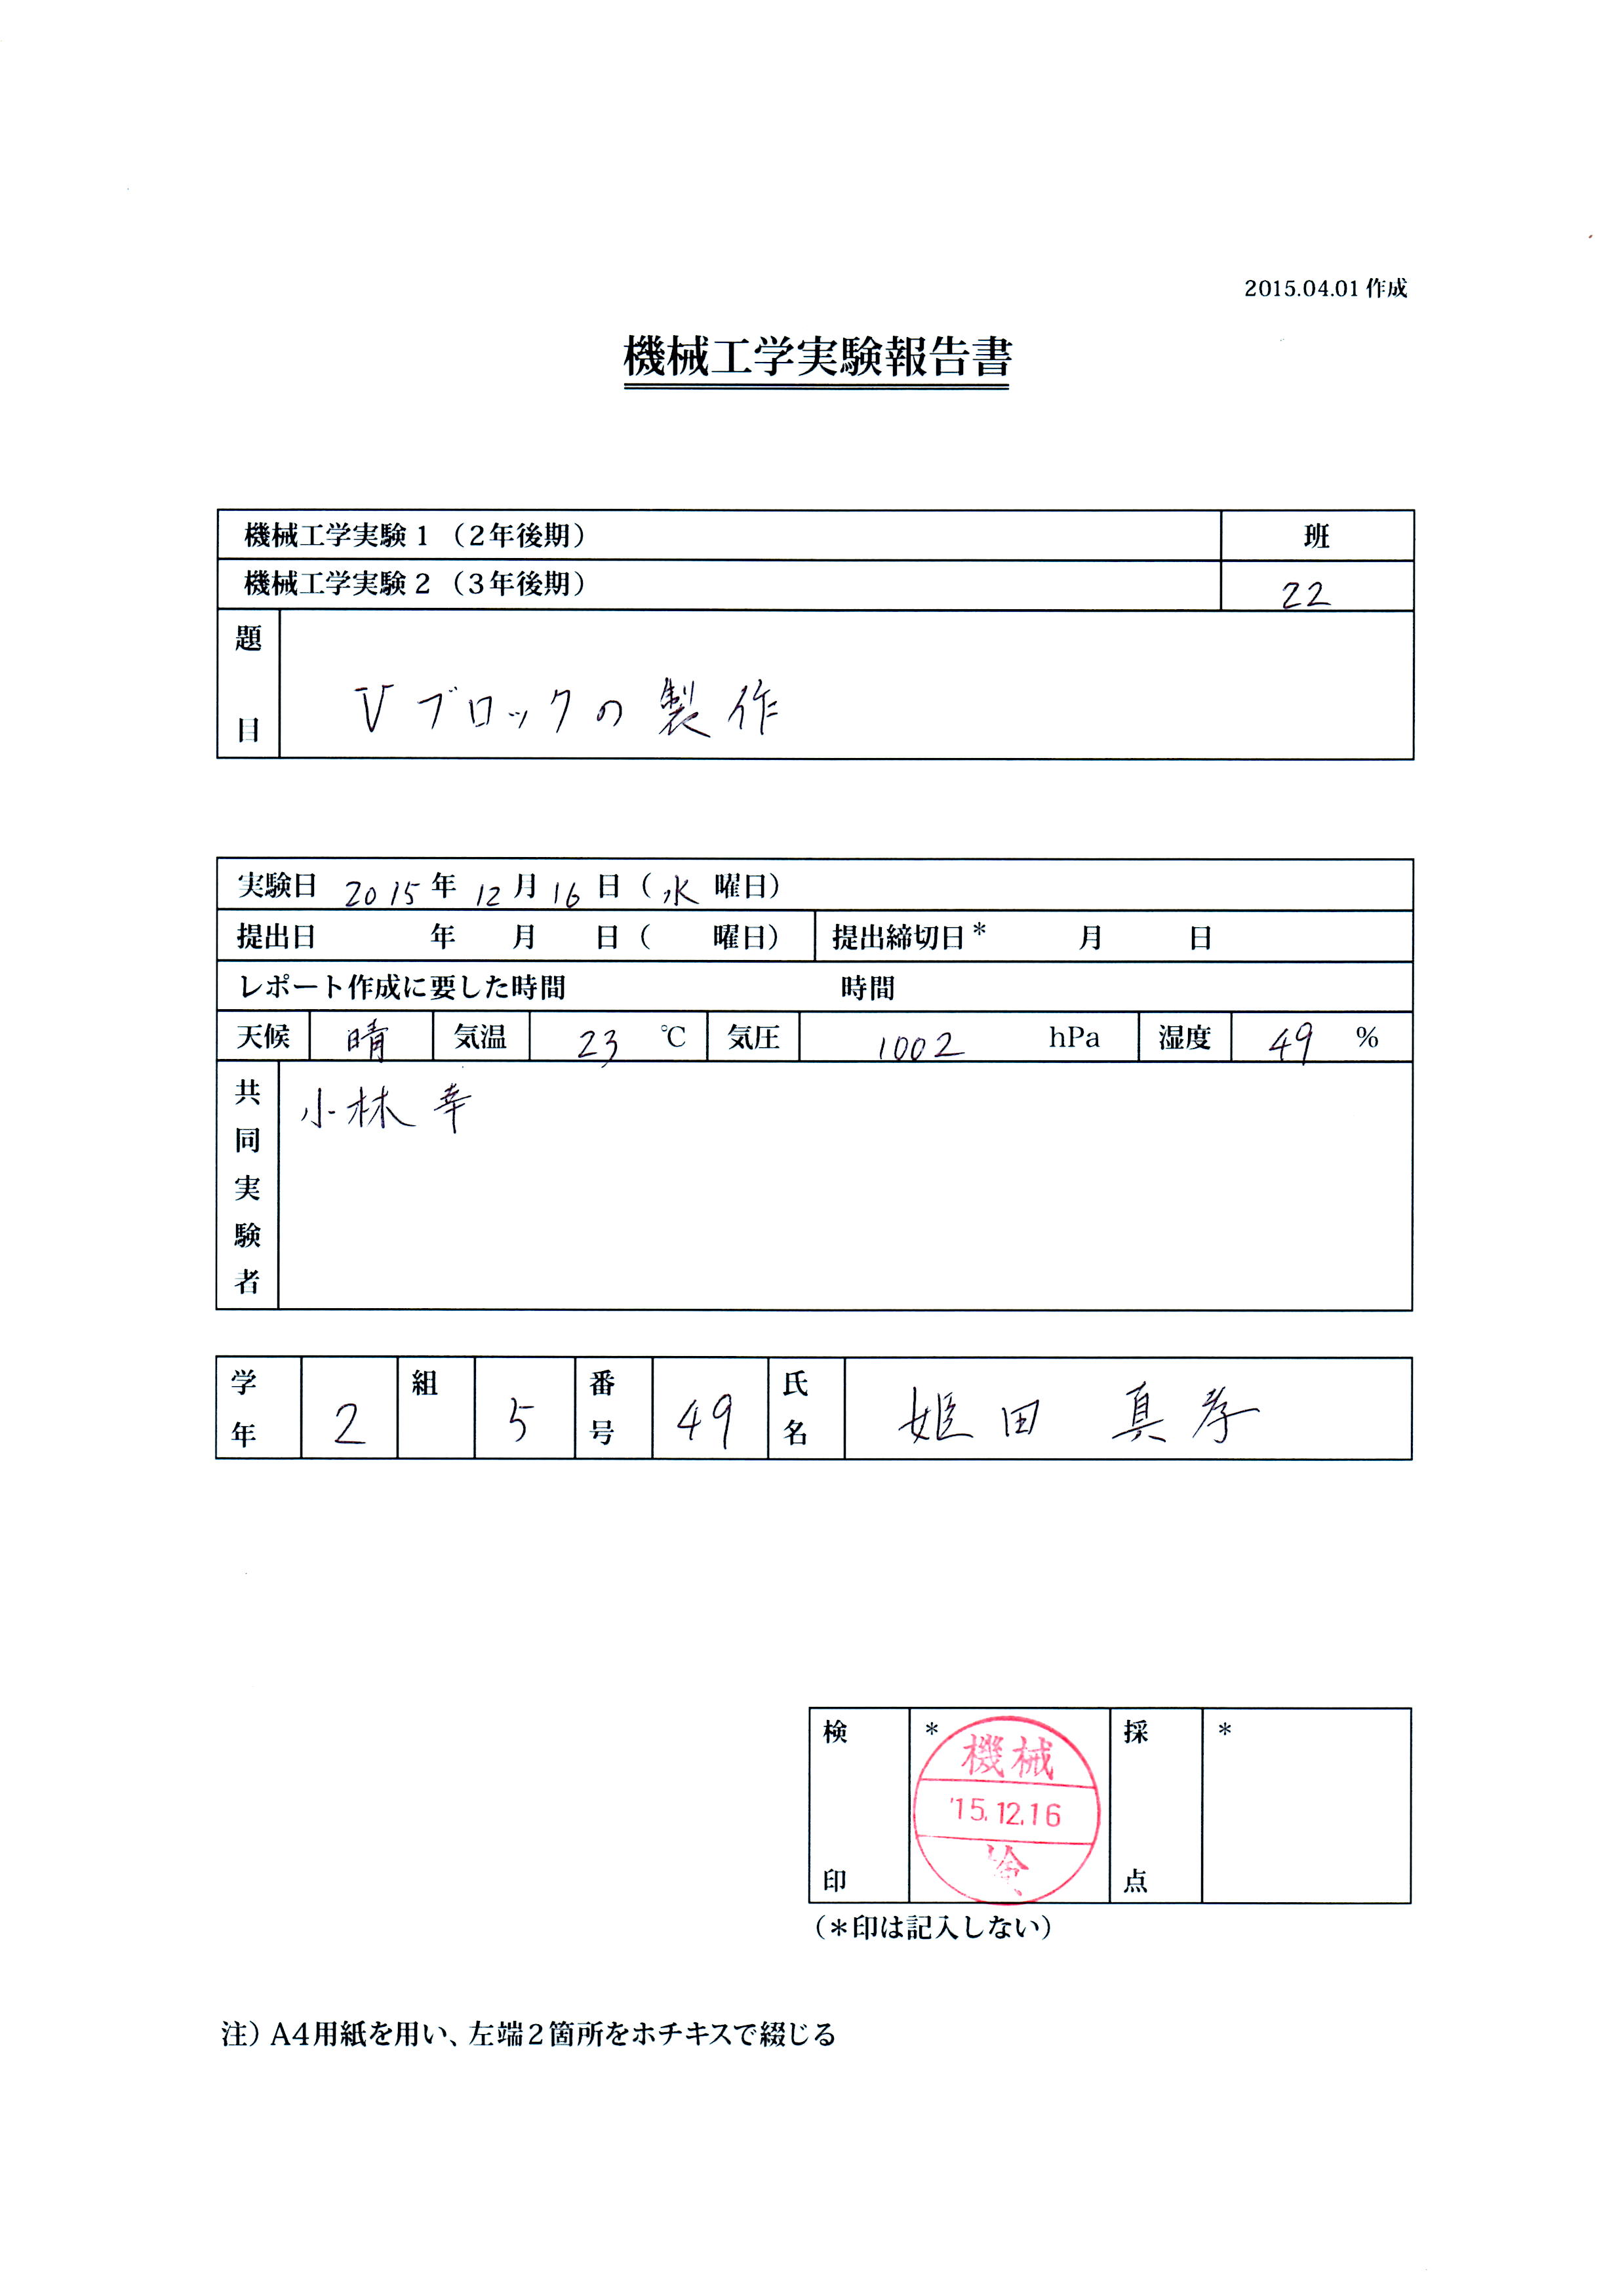 2015.04.01 作成
機械工学実験報告書
機械工学実験1 (2年後期) 班
機械工学実験2 (3年後期) 22
題目 Vブロックの製作
実験日 2015 年 12 月 16 日 ( 水 曜日)
提出日 年 月 日 ( 曜日) 提出締切日* 月 日
レポート作成に要した時間 時間
天候 晴 気温 23 ℃ 気圧 1002 hPa 湿度 49 %
共同実験者 小林 幸
学年 2 組 5 番号 49 氏名 姫田 真孝
検印 * 採点 *
機械
'15.12.16
(*印は記入しない)
注) A4用紙を用い、左端2箇所をホチキスで綴じる